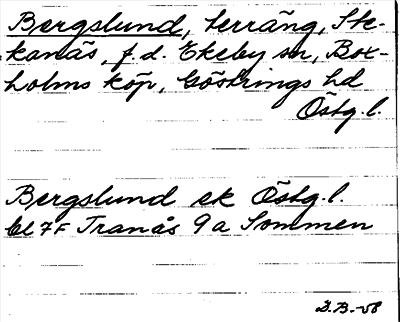 Bergslund, terräng, Ste-
kanäs, f.d. Ekeby sn, Box-
holms köp, Göstrings hd
Östg. l.
Bergslund ek Östg. l.
bl 7F Tranås 9a Sommen
D.B.-58